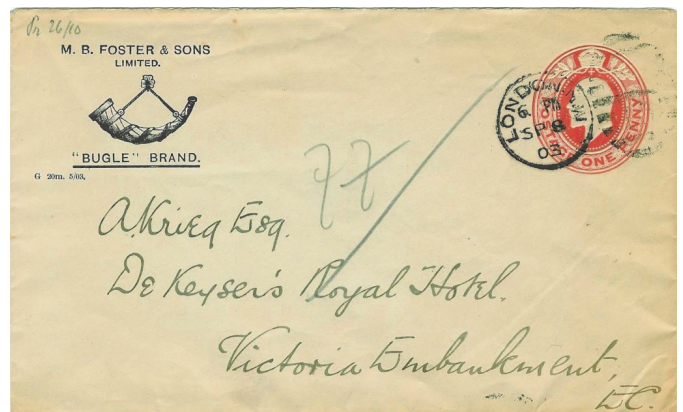 Pr 26/10
M. B. FOSTER & SONS
LIMITED.
"BUGLE" BRAND.
G 20m. 5/03,
LONDON.N.W
6 PM
SP 8
03
POSTAGE ONE PENNY
77
A. Krieg Esq.
De Keyser's Royal Hotel.
Victoria Embankment,
E.C.